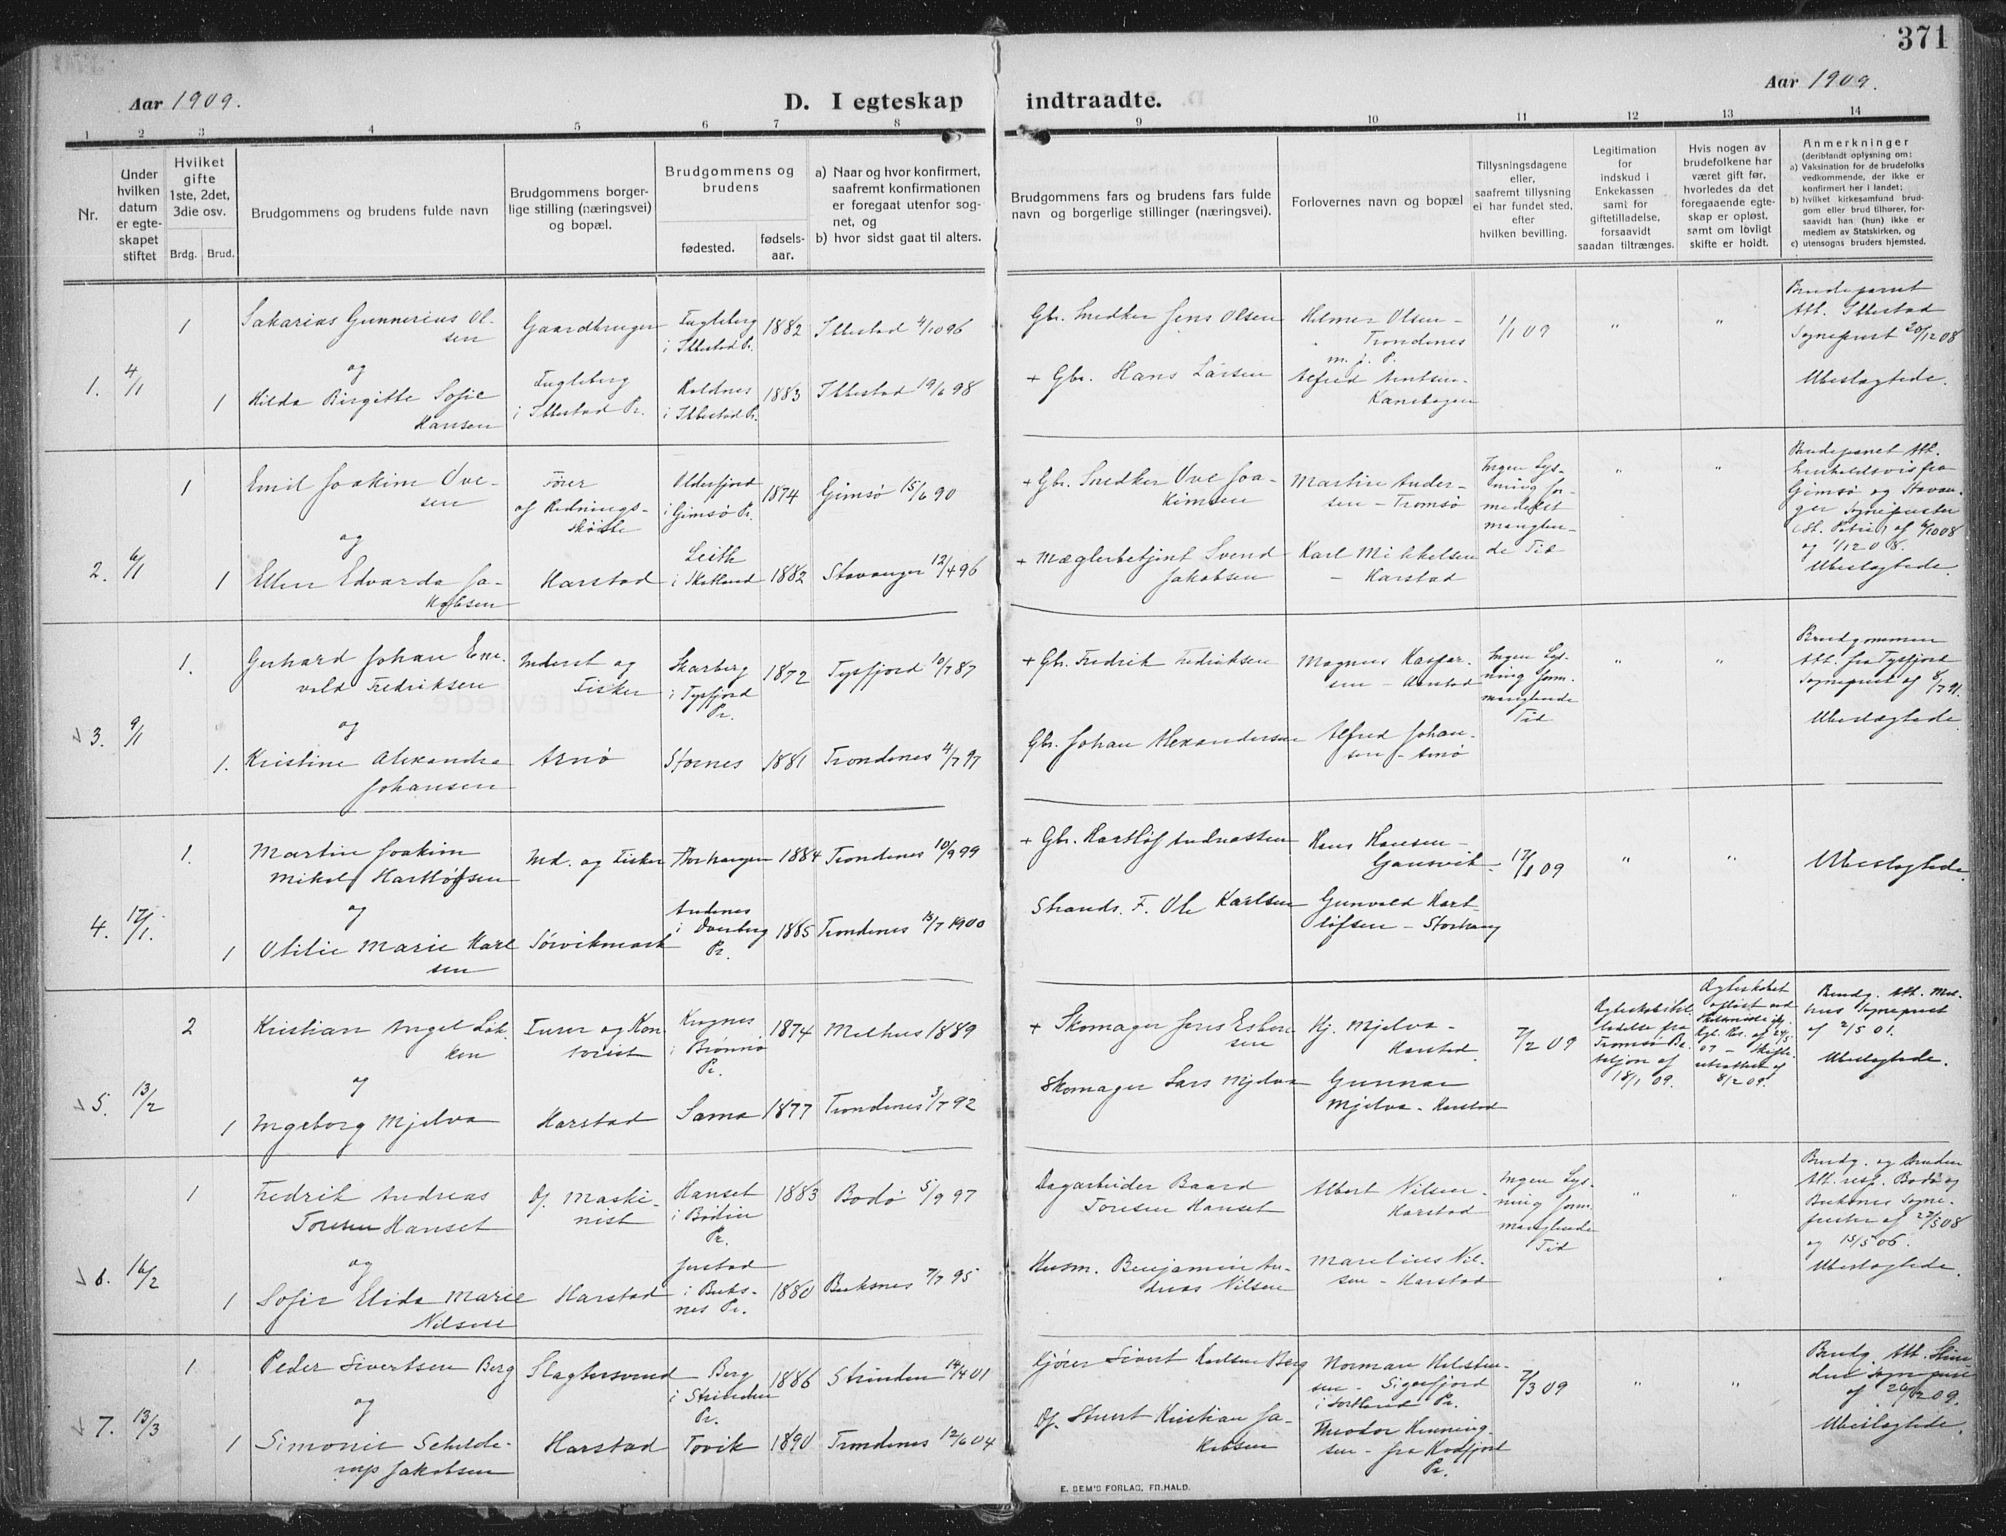 371
Aar 1909.
D. I egteskap indtraadte.
Aar 1909.
1 2 3 4 5 6 7 8 9 10 11 12 13 14
Nr.
Under hvilken datum er egte-skapet stiftet
Hvilket gifte 1ste, 2det, 3die osv.
Brdg. Brud.
Brudgommens og brudens fulde navn
Brudgommens borger-lige stilling (næringsvei) og bopæl.
Brudgommens og brudens
fødested.
fødsels-aar.
a) Naar og hvor konfirmert, saafremt konfirmationen er foregaat utenfor sog-net, og
b) hvor sidst gaat til alters.
Brudgommens fars og brudens fars fulde navn og borgerlige stillinger (næringsvei).
Forlovernes navn og bopæl
Tillysningsdagene eller, saafremt tillysning ei har fundet sted, efter hvilken bevilling.
Legitimation for indskud i Enkekassen samt for giftetilladelse, forsaavidt saadan tiltrænges.
Hvis nogen av brudefolkene har været gift før, hvorledes da det foregaaende egte-skap er opløst, samt om lovligt skifte er holdt.
Anmerkninger
(deriblandt oplysning om:
a) Vaksination for de brudefolks vedkommende, der ikke er konfirmert her i landet;
b) hvilket kirkesamfund brud-gom eller brud tilhører, for-saavidt han (hun) ikke er medlem av Statskirken, og
c) utensogns bruders hjemsted.
1. 4/1
1 Sakarias Gunnerius Ol-
sen
Gaardbruger
Fugleberg
i Ibbestad Pr.
1882 Ibbestad 4/10 96
Gbr. Snedker Jens Olsen
Hilmer Olsen -
Trondenes
m. j. P.
1/1 09 " "
Brudeparret
Att. Ibbestad
Sogneprest 20/12 08
og
1 Hilda Birgitte Sofie
Hansen
Fugleberg
i Ibbestad Pr.
Roldnes
i Ibbestad Pr.
1883 Ibbestad 19/6 98
+ Gbr. Hans Larsen
Alfred Arntsen -
Kanebogen
Ubeslægtede.
2. 6/1
1 Emil Joakim Ove-
sen
Fører
af Rednings-
skøite
Oldersfjord
i Gimsø Pr.
1874 Gimsø 15/6 90
+ Gbr. Snedker Ove Joa-
kimsen
Martin Ander-
sen - Tromsø
Ingen Lys-
ning for-
medelst
manglen-
de Tid
" "
Brudeparret Att.
fra
Gimsø og Stavan-
ger Sogneprester
St. Petri af 6/10 08
og 1/12 08.
Ubeslægtede.
og
1 Ellen Edvarda Ja-
kobsen
Harstad
Leith
i Skotland
1882 Stavanger 12/4 96
+ Mæglerbetjent Svend
Jakobsen
Karl Mikkelsen
- Harstad
3. 9/1
1. Gerhard Johan Ene-
vold Fredriksen
Inderst og
Fisker
Skarberg
i Tysfjord
Pr.
1872 Tysfjord 10/7 87
+ Gbr. Fredrik Fredriksen
Magnus Kaspar-
sen - Harstad
Ingen Lys-
ning form.
manglende
Tid
" "
Brudgommen
Att. fra Tysfjord
Sogneprest af 8/7 91.
Ubeslægtede
og
1. Kristine Alexandra
Johansen
Arnø
Stornes 1881 Trondenes 4/7 97
Gbr. Johan Alexandersen
Alfred Johan-
sen - Arnø
4. 17/1.
1. Martin Joakim
Mikal Hartløfsen
Ind. og Fisker
Storhaugen 1884 Trondenes 10/9 99
+ Gbr. Hartløf Andreassen
Hans Hansen -
Gansvik -
17/1 09 " "
Ubeslægtede.
og
1 Otilie Marie Karl
sen
Sørvikmark
Andenes
i Dverberg
Pr.
1885 Trondenes 15/7 1900
Strands. F. Ole Karlsen
Gunvald Hart-
løfsen - Storhaug
5. 13/2
2 Kristian Angel Løk-
ken
Furer og Kon-
torist
i Brønnø
Pr.
1874 Melhus 1889
+ Skomager Jens Esben
sen
Hj. Mjelva -
Harstad
7/2 09
ladelse fra
Tromsø Ba-
taljon af
18/1 09.
Egteskabet
opløst ved
Kgl. Res. af 24/5
07 - Skifte-
retsattest af
8/2 09.
Brudg. Att. Mel-
hus Sogneprest
af 2/5 01.
Ubeslægtede.
og
1 Ingeborg Mjelva
Harstad
Sama 1877 Trondenes 3/7 92
Skomager Lars Mjelva
Gunnar
Mjelva - Harstad
6. 16/2
1 Fredrik Andreas
Toresen Hanset
Df. Maski-
nist
Hanset
i Bodin
Pr.
1883 Bodø 5/9 97
Dagarbeider Baard
Toresen Hanset
Albert Nilsen -
Harstad
Ingen Lys-
ning form.
manglende
Tid
" "
Brudg. og Bruden
Att. resp. Bodø og
Buksnes Sogne-
prester af 23/5 08
og 15/5 06.
Ubeslægtede.
og
1 Sofie Elida Marie
Nilsen
Harstad
Jerstad
i Buks-
nes Pr.
1880 Buksnes 7/7 95
Husm. Benjamin An-
dreas Nilsen
Marelius Nil-
sen - Harstad
7. 13/3
1 Peder Sivertsen Berg
Slagtersvend
Berg
i Strinden
Pr.
1886 Strinden 14/4 01
Kjører Sivert Berg
Norman Helster-
sen - Sigerfjord
i Sortland Pr.
7/3 09 " "
Brudg. Att. Strin-
den Sogneprest
af 20/2 09.
Ubeslægtede.
og
1 Simonie Schilde-
rup Jakobsen
Harstad
Tovik 1890 Trondenes 12/6 04
Df. Stuert Kristian Ja-
kobsen
Theodor Henning-
sen - fra Kvæfjord
Pr.
E. SEM'S FORLAG, FR.HALD.